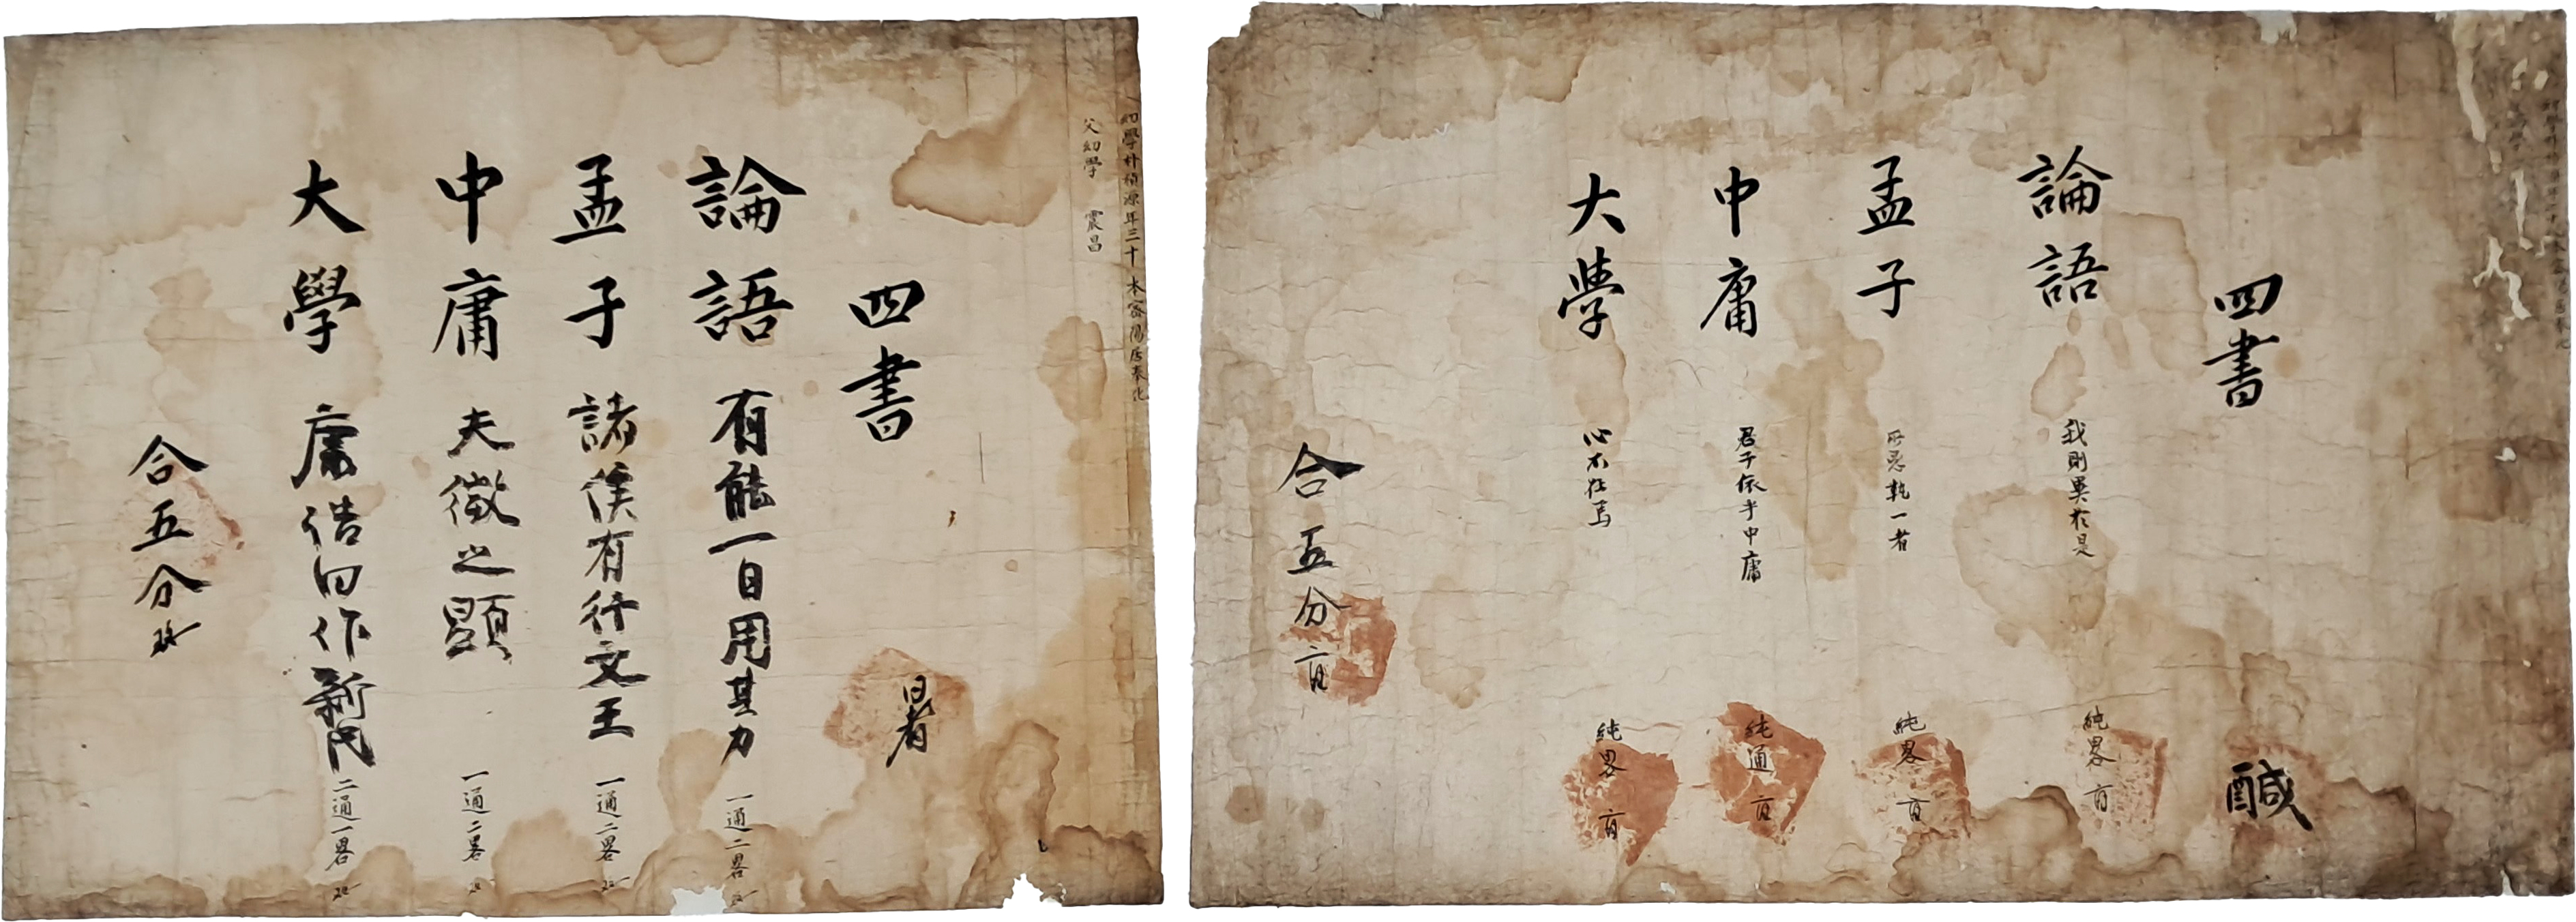 幼學朴楨源年三十 本密陽居奉化
父幼學 震昌
四書 暑
論語 有能一日用其力 一通二畧
孟子 諸侯有行文王 一通二畧
中庸 夫微之顯 一通二畧
大學 康誥曰作新民 二通一畧
合五分
四書 醎
論語 我則異於是 純畧
孟子 所惡執一者 純畧
中庸 君子依乎中庸 純通
大學 心不在焉 純畧
合五分